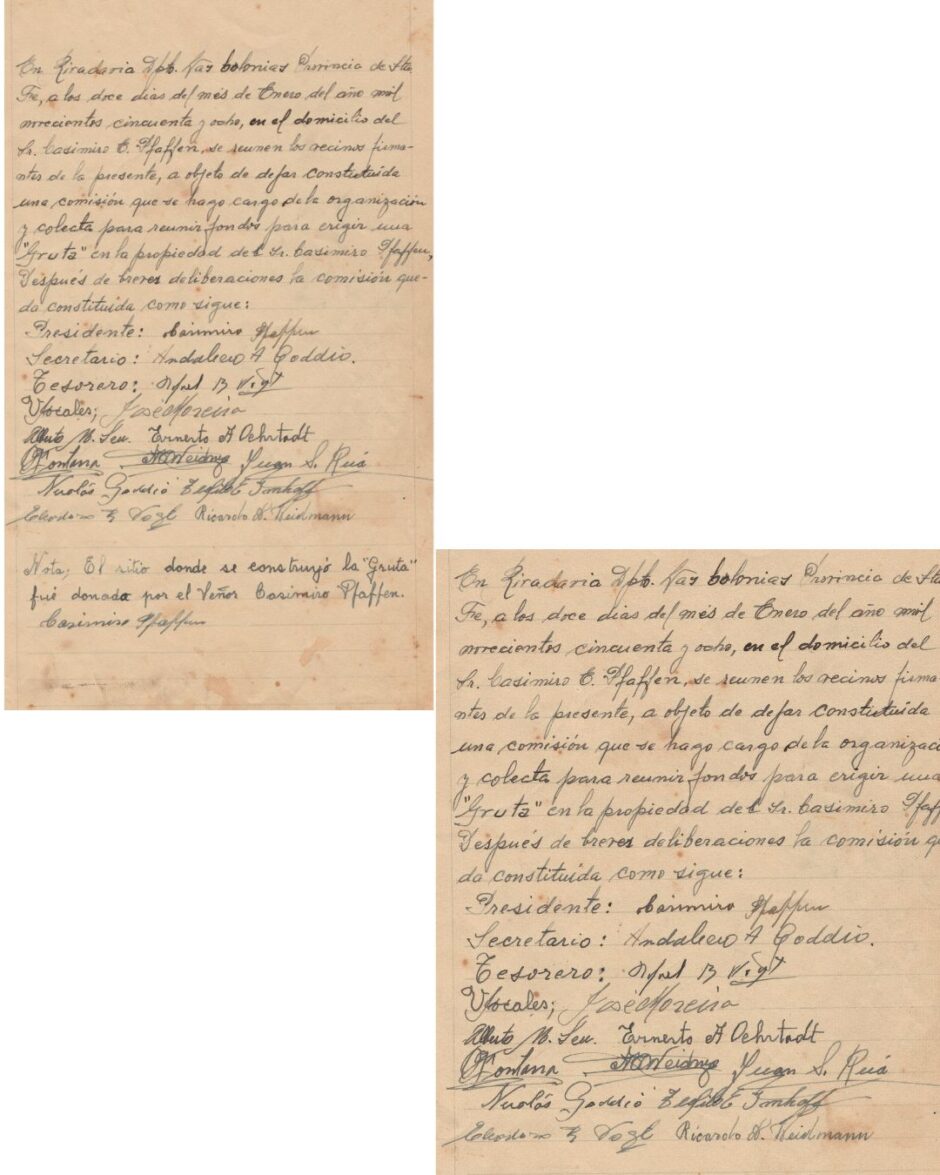 En Rivadavia Dpto. Las Colonias Provincia de Sta.
Fe, a los doce dias del mes de Enero del año mil
novecientos cincuenta y ocho, en el domicilio del
Sr. Casimiro E. Pfaffen, se reunen los vecinos firma-
ntes de la presente, a objeto de dejar constutuída
una comisión que se hago cargo de la organización
y colecta para reunir fondos para erigir una
"Gruta" en la propiedad del Sr. Casimiro Pfaffen,
Después de breves deliberaciones la comisión que-
da constituída como sigue:
Presidente: Casimiro Pfaffen
Secretario: Andalecio A Goddio.
Tesorero: B Vogt
Vocales; José Moreira
M. Ernesto A Oehrtadt
Fontana Juan S. Ruá
Nicolás Goddio Imhoff
Eleodoro E Vogt Ricardo A. Weidmann
Nota; El sitio donde se construyó la "Gruta"
fué donada por el Señor Casimiro Pfaffen.
Casimiro Pfaffen
En Rivadavia Dpto. Las Colonias Provincia de Sta
Fe, a los doce dias del mes de Enero del año mil
novecientos cincuenta y ocho, en el domicilio del
Sr. Casimiro E. Pfaffen, se reunen los vecinos firma-
ntes de la presente, a objeto de dejar constutuída
una comisión que se hago cargo de la organizaci
y colecta para reunir fondos para erigir una
"Gruta" en la propiedad del Sr. Casimiro Pfaff
Después de breves deliberaciones la comisión q
da constituída como sigue:
Presidente: Casimiro Pfaffen
Secretario: Andalecio A Goddio.
Tesorero: B Vogt
Vocales; José Moreira
M. Ernesto A Oehrtadt
Fontana Juan S. Ruá
Nicolás Goddio Imhoff
Eleodoro E Vogt Ricardo A. Weidmann